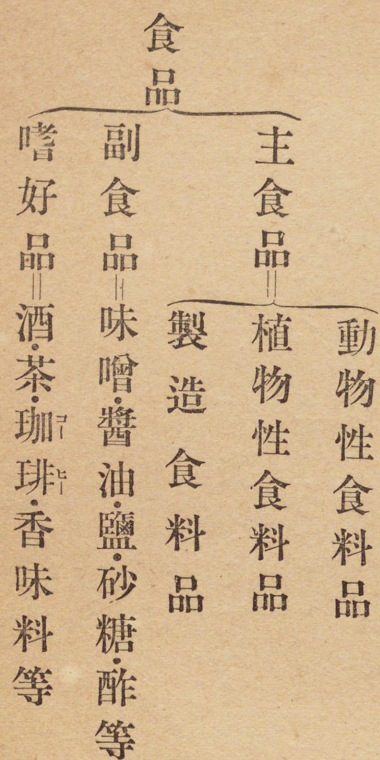 食品
主食品＝
動物性食料品
植物性食料品
製造食料品
副食品＝味噌・醬油・鹽・砂糖・酢等
嗜好品＝酒・茶・珈琲・香味料等
コーヒー